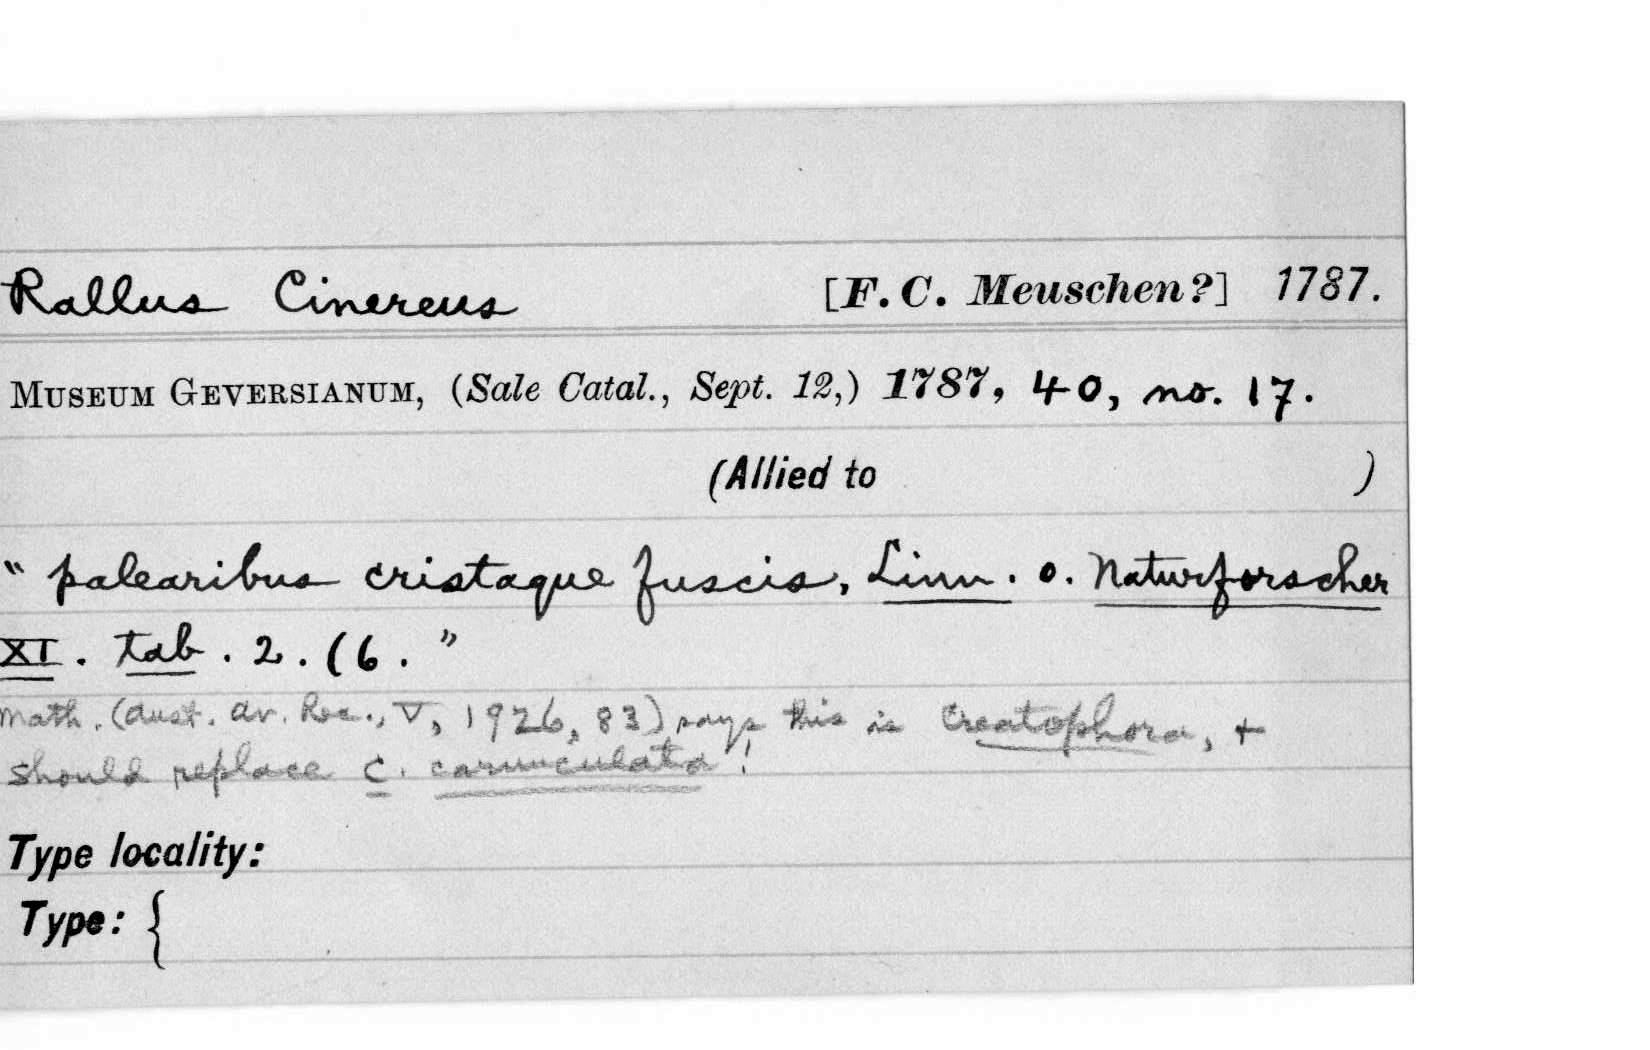 Rallus Cinereus [F. C. Meuschen?] 1787.
MUSEUM GEVERSIANUM, (Sale Catal., Sept. 12,) 1787, 40, no. 17.
(Allied to )
" palearibus cristaque fuscis, Linn. o. Naturforscher
XI. tab. 2. (6. "
Math. (Aust. Av. Rec., V, 1926, 83) says this is Creatophora, +
should replace C. carunculata!
Type locality:
Type: {